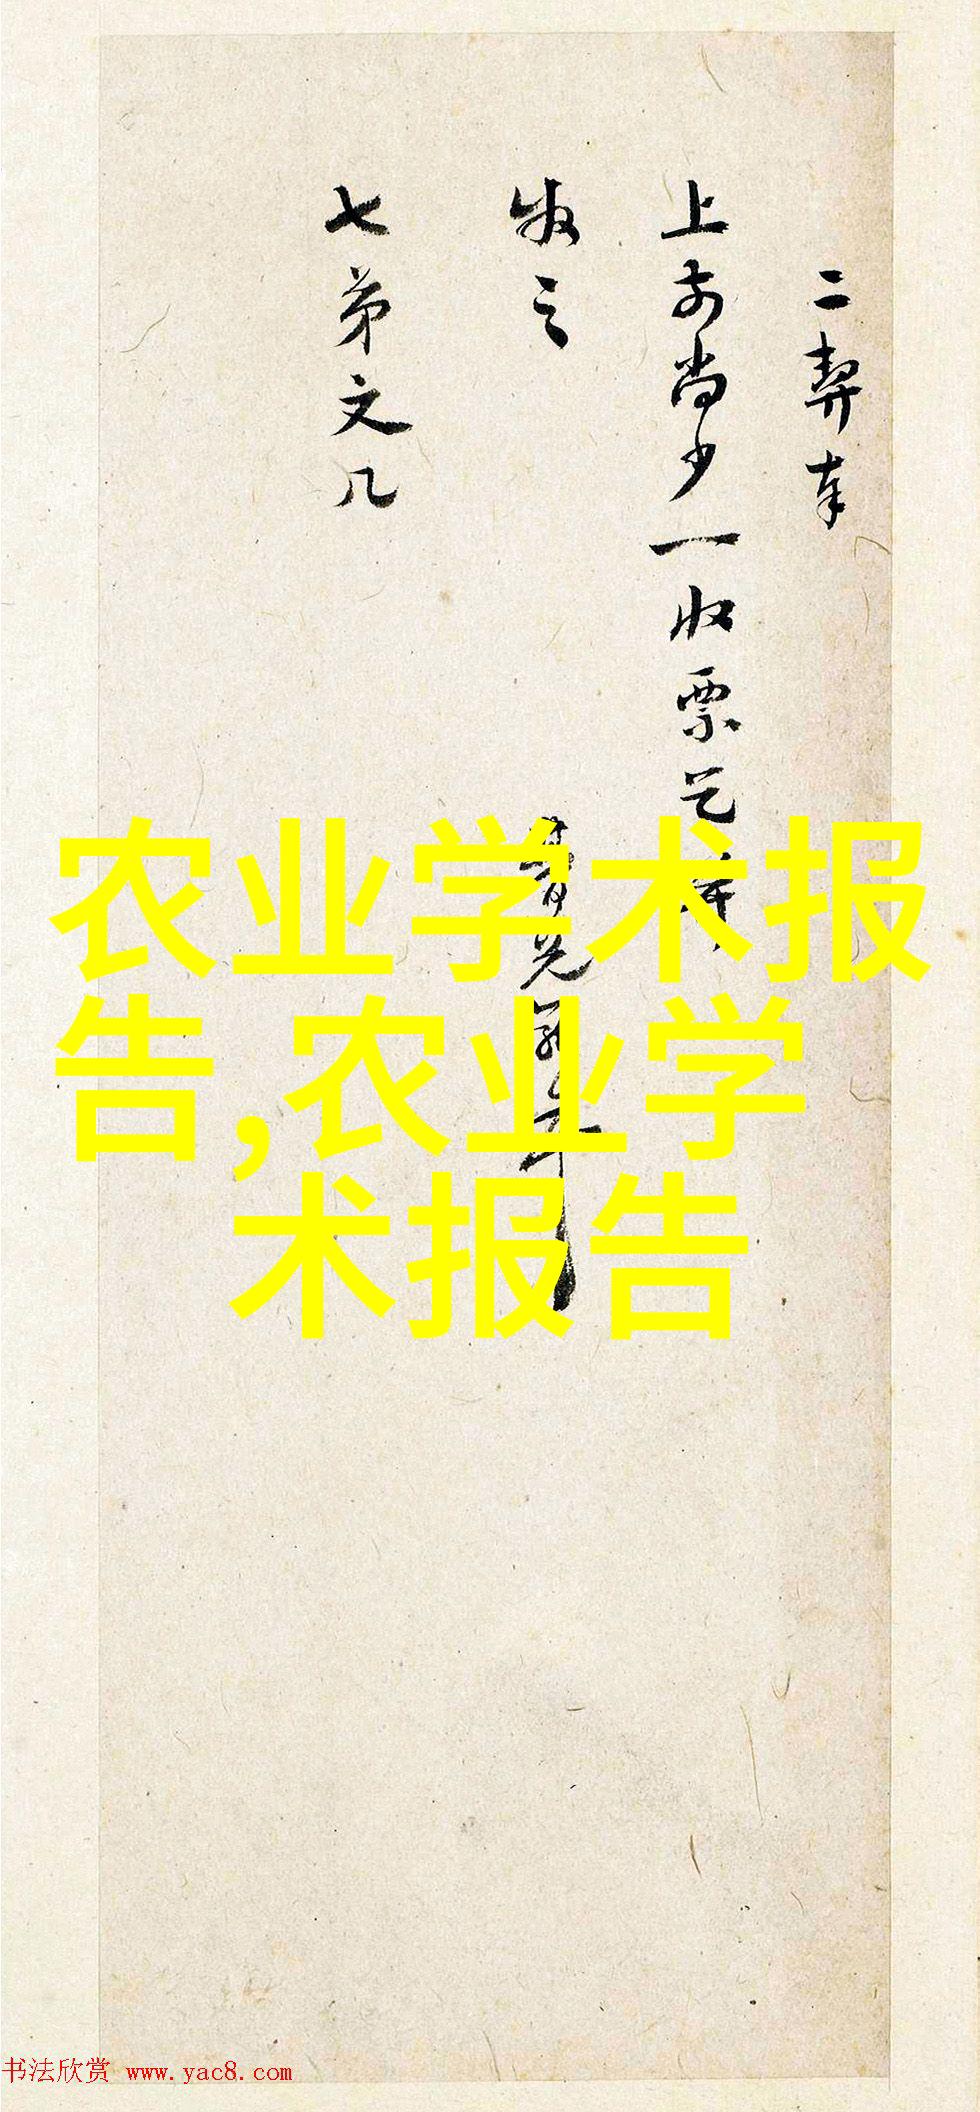 二契奉
上前尚少一收票乞
收之
七弟文几
农业学术报
告,农业学
术报告
书法欣赏 www.yac8.com